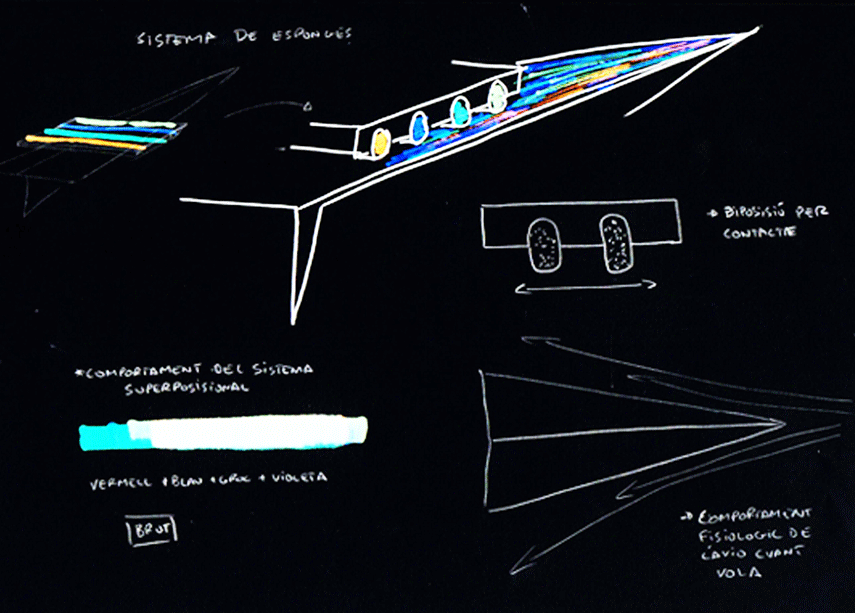 SISTEMA DE ESPONGES
→ DIPOSISIÓ PER
CONTACTE
*COMPORTAMENT DEL SISTEMA
SUPERPOSISIONAL
VERMELL + BLAU + GROC + VIOLETA
BRUT
→ COMPORTAMENT
FISIOLOGIC DE
L'AVIO CUANT
VOLA